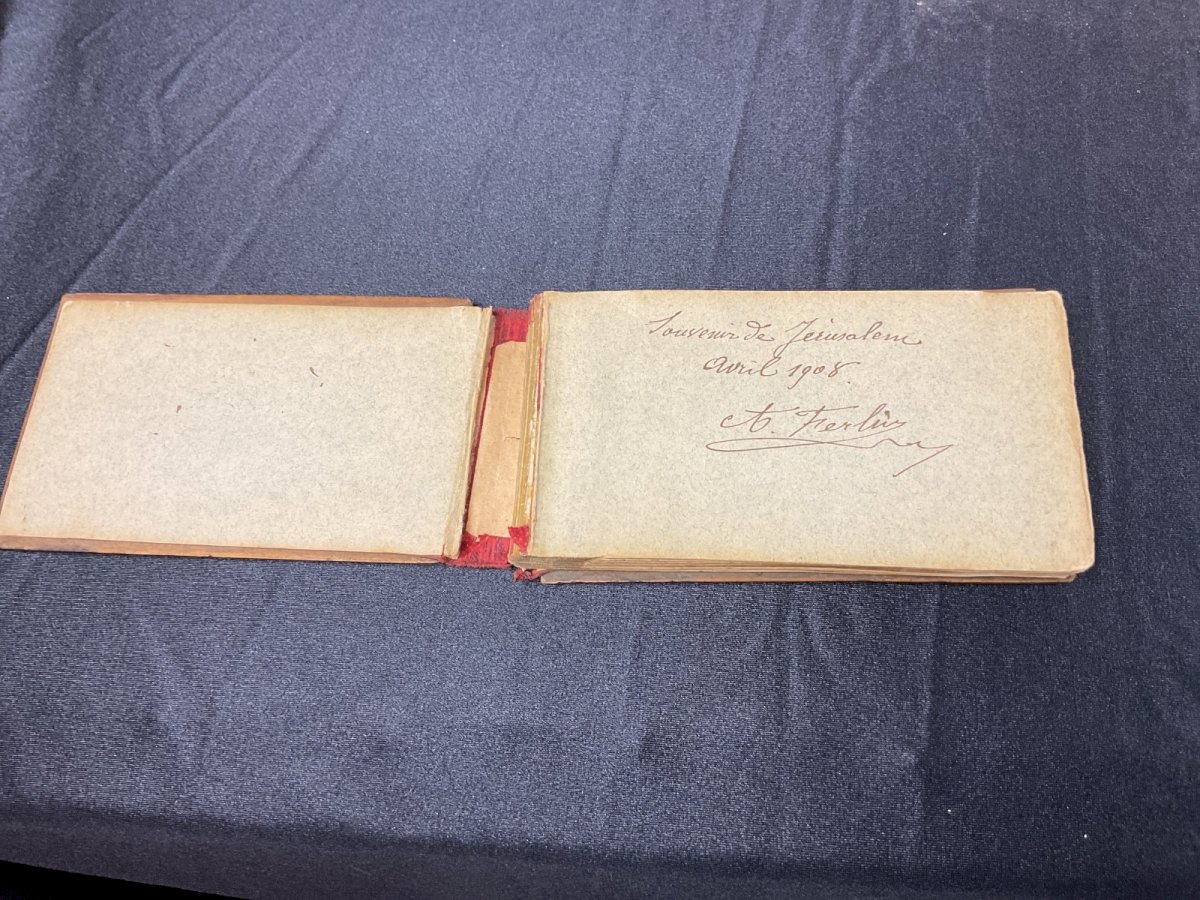 Souvenir de Jérusalem
Avril 1908.
A. Ferlin